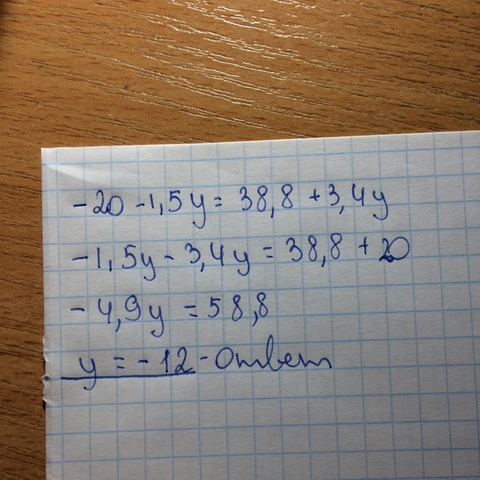 -20 - 1,5y = 38,8 + 3,4y
-1,5y - 3,4y = 38,8 + 20
-4,9y = 58,8
y = -12 - ответ